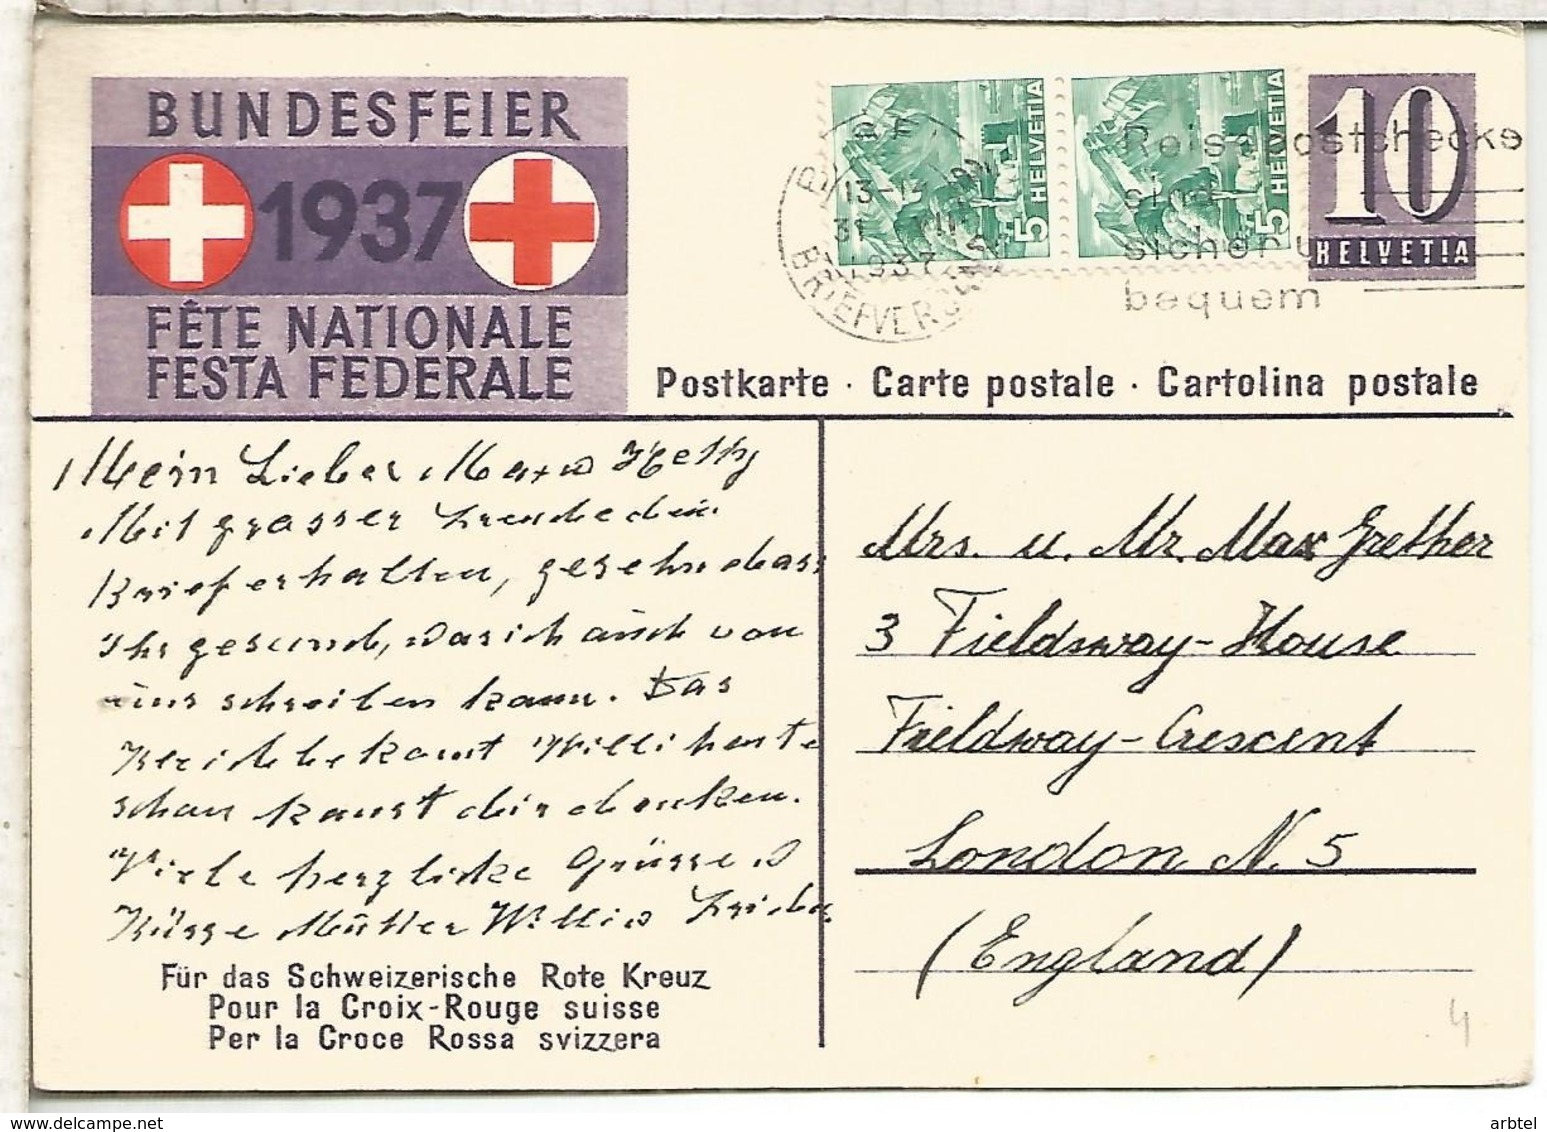 BUNDESFEIER
1937
FÊTE NATIONALE
FESTA FEDERALE
HELVETIA 5
HELVETIA 5
10
HELVETIA
13-14
31 VII
1937
BRIEFVERSAND
Reisepostchecks
sind
sicher u
bequem
Postkarte · Carte postale · Cartolina postale
Mein Lieber Max u Hetty
Mit grosser Freude dein
Brief erhalten, gesehn dass
Ihr gesund, was ich auch von
uns schreiben kann. Das
bekamt Willi heute
schon kanst dir denken.
Viele herzliche Grüsse u
Küsse Mutter Willi u Frieda
Für das Schweizerische Rote Kreuz
Pour la Croix-Rouge suisse
Per la Croce Rossa svizzera
Mrs. u. Mr. Max Grether
3 Fieldsway-House
Fieldway-Crescent
London N. 5
(England)
4
arbtel
www.delcampe.net